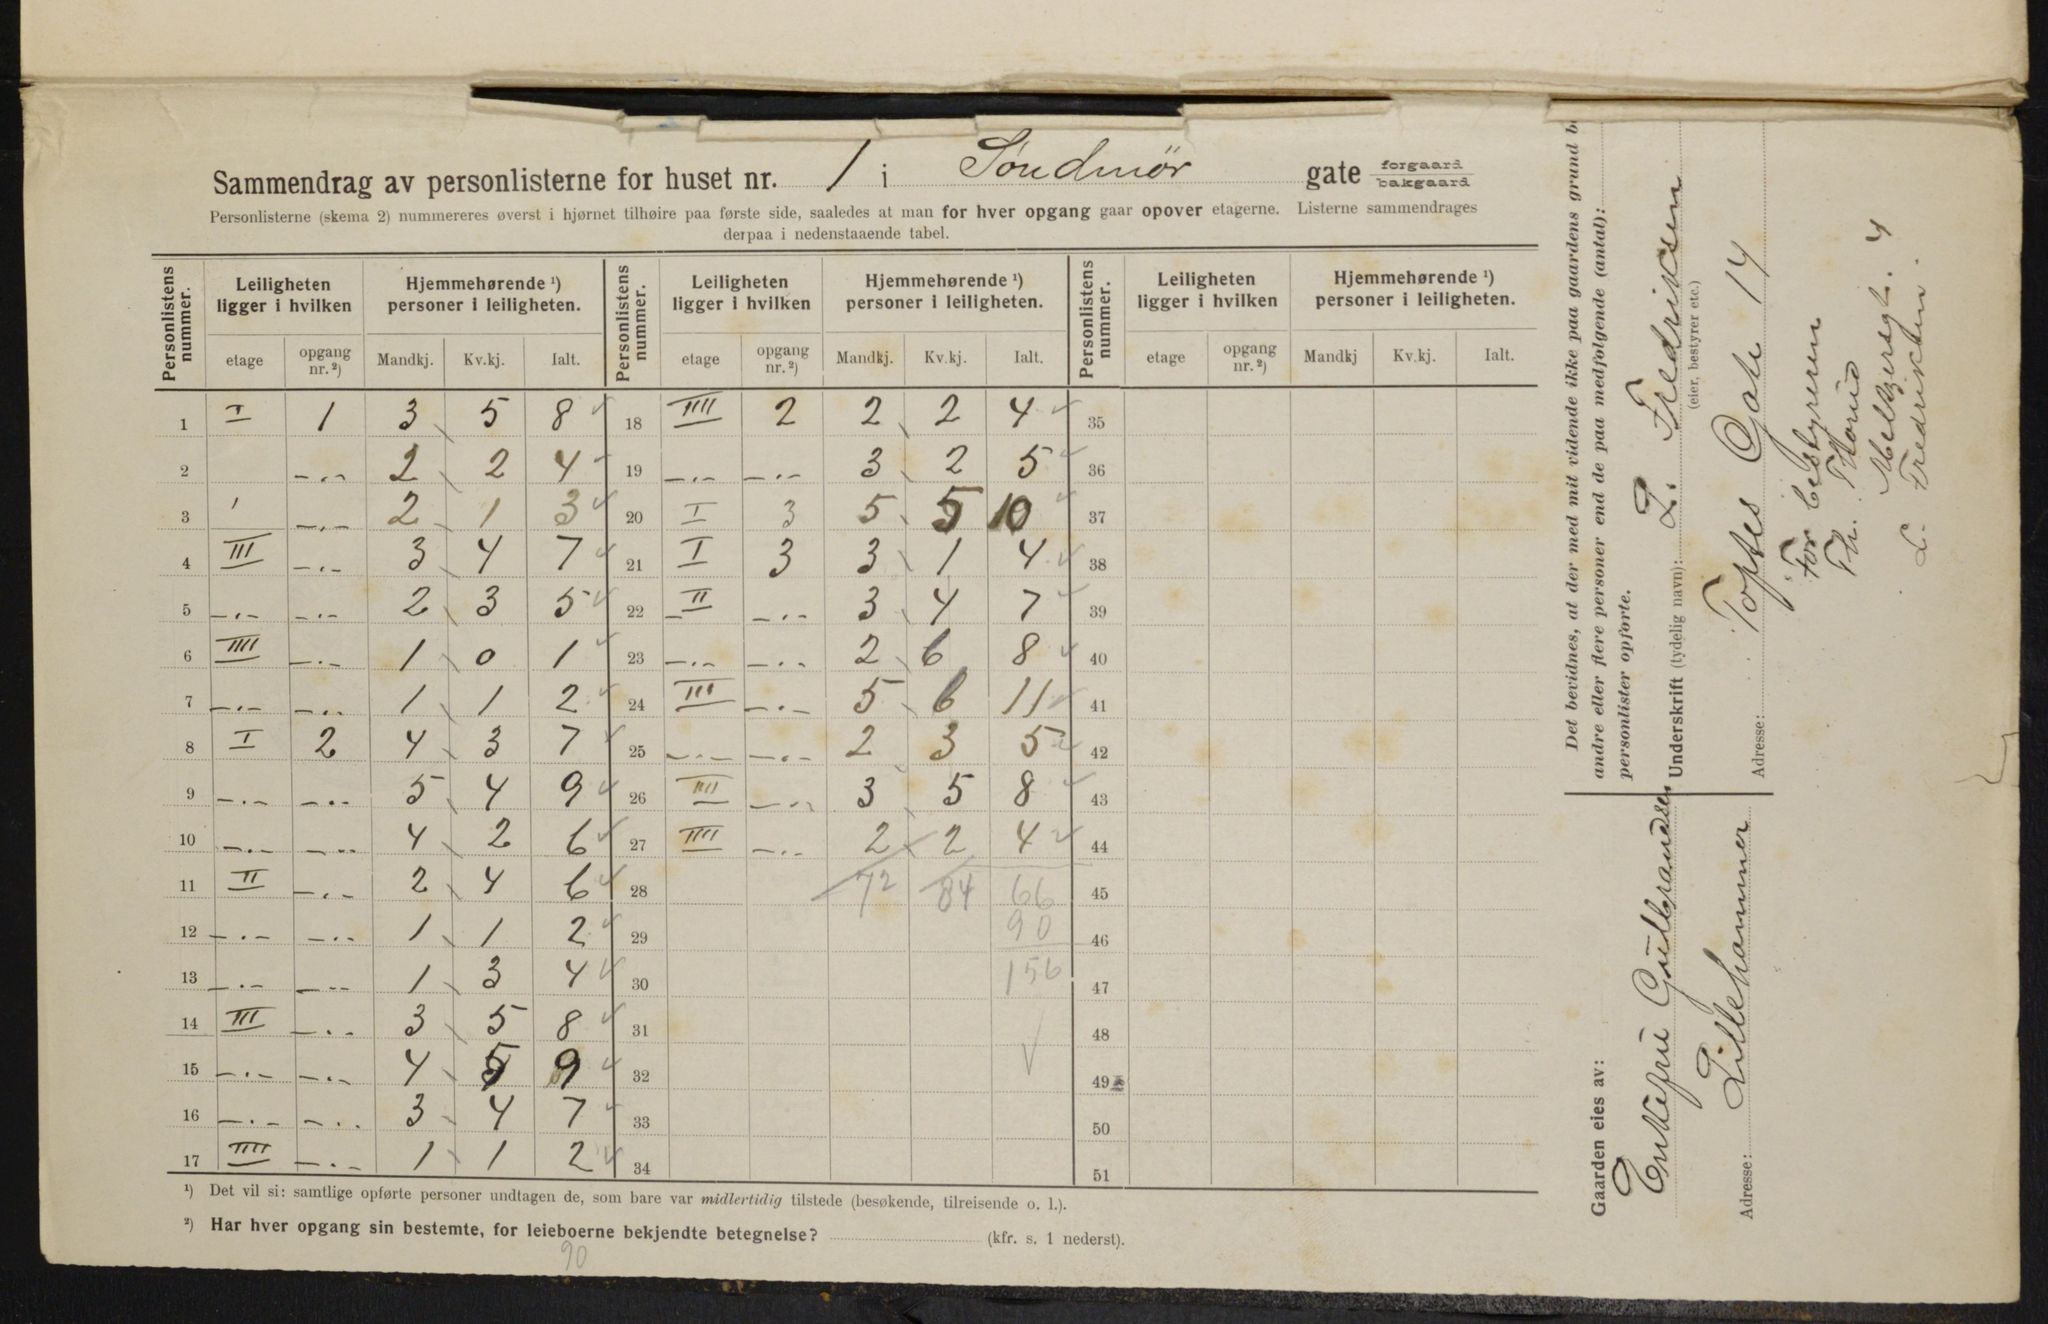 Sammendrag av personlisterne for huset nr. 1 i Söndmör gate forgaard bakgaard
Personlisterne (skema 2) nummereres øverst i hjørnet tilhøire paa første side, saaledes at man for hver opgang gaar opover etagerne. Listerne sammendrages
derpaa i nedenstaaende tabel.
Personlistens nummer. Leiligheten ligger i hvilken Hjemmehørende ¹) personer i leiligheten. Personlistens nummer. Leiligheten ligger i hvilken Hjemmehørende ¹) personer i leiligheten. Personlistens nummer. Leiligheten ligger i hvilken Hjemmehørende ¹) personer i leiligheten.
etage opgang nr. ²) Mandkj. Kv.kj. Ialt. etage opgang nr. ²) Mandkj. Kv.kj. Ialt. etage opgang nr. ²) Mandkj Kv.kj. Ialt.
1 I 1 3 5 8 18 IIII 2 2 2 4 35
2 —.— 2 2 4 19 —.— —.— 3 2 5 36
3 ' —.— 2 1 3 20 I 3 5 5 10 37
4 III —.— 3 4 7 21 I 3 3 1 4 38
5 —.— —.— 2 3 5 22 II —.— 3 4 7 39
6 IIII —.— 1 0 1 23 —.— —.— 2 6 8 40
7 —.— —.— 1 1 2 24 III —.— 5 6 11 41
8 I 2 4 3 7 25 —.— —.— 2 3 5 42
9 —.— —.— 5 4 9 26 III —.— 3 5 8 43
10 —.— —.— 4 2 6 27 IIII —.— 2 2 4 44
11 II —.— 2 4 6 28 72 84 66 45
12 —.— —.— 1 1 2 29 90 46
13 —.— —.— 1 3 4 30 156 47
14 III —.— 3 5 8 31 48
15 —.— —.— 4 5 9 32 49
16 —.— —.— 3 4 7 33 50
17 IIII —.— 1 1 2 34 51
¹) Det vil si: samtlige opførte personer undtagen de, som bare var midlertidig tilstede (besøkende, tilreisende o. l.).
²) Har hver opgang sin bestemte, for leieboerne bekjendte betegnelse? (kfr. s. 1 nederst).
90
Det bevidnes, at der med mit vidende ikke paa gaardens grund
andre eller flere personer end de paa medfølgende (antal):
personlister opførte.
Underskrift (tydelig navn): L. Fredriksen
(eier, bestyrer etc.)
Adresse: Toftes Gate 14
For bestyreren
Th. Thorud
Melkersgt. 4
L. Fredriksen.
Gaarden eies av:
Enkefru Gulbrandsen
Adresse: Lillehammer